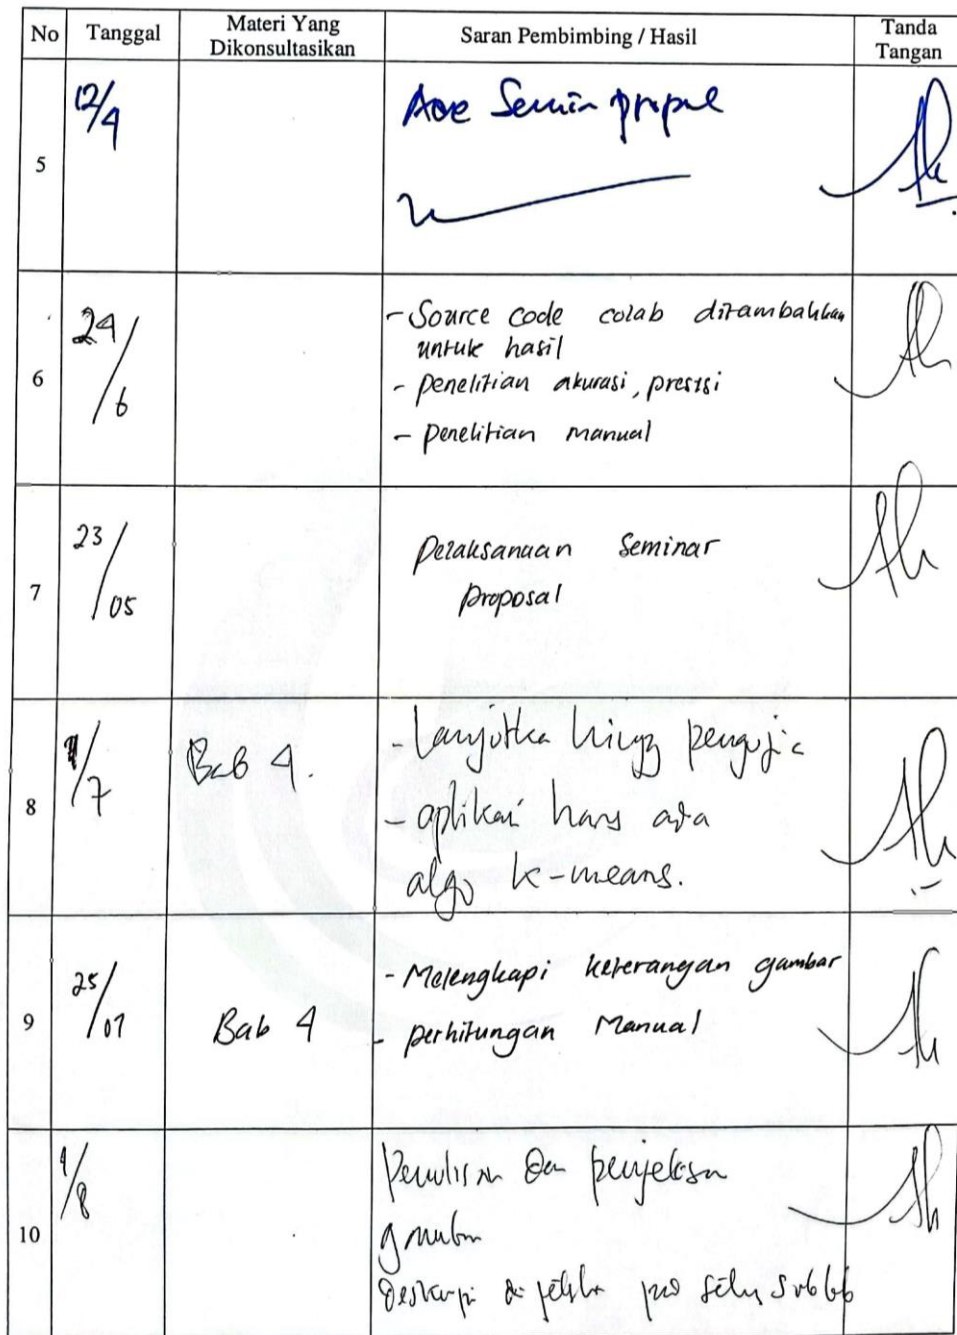 No Tanggal Materi Yang Dikonsultasikan Saran Pembimbing / Hasil Tanda Tangan
5 12/4 Acc
6 24/6 - Source code colab ditambahkan
untuk hasil
- penelitian akurasi, presisi
- penelitian manual
7 23/05 pelaksanaan Seminar
proposal
8 /7 Bab 4. -
- aplikasi harus ada
algo k-means.
9 25/07 Bab 4 - Melengkapi keterangan gambar
- perhitungan Manual
10 /8 penulisan dan penjelasan